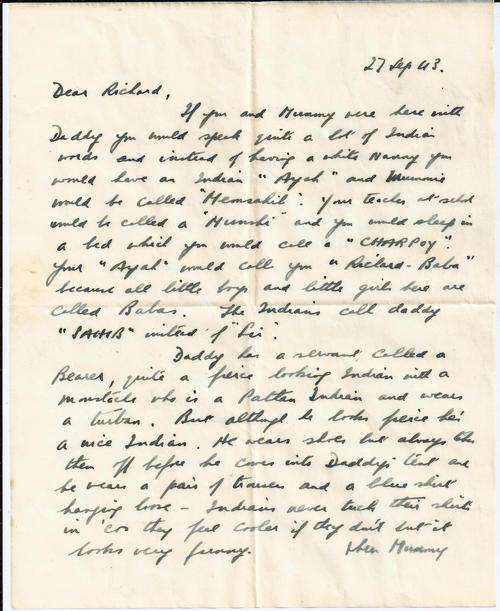 27 Sep 43.
Dear Richard,
If you and Mummy were here with
Daddy you would speak quite a lot of Indian
words and instead of having a white Nanny you
would have an Indian "Ayah" and Mummie
would be called "Memsahib". Your teacher at school
would be called a "Munshi" and you would sleep in
a bed which you would call a "CHARPOY".
Your "Ayah" would call you "Richard-Baba"
because all little boys and little girls here are
called Babas. The Indians call daddy
"SAHIB" instead of "Sir".
Daddy has a servant called a
Bearer, quite a fierce looking Indian with a
moustache who is a Pathan Indian and wears
a turban. But although he looks fierce he's
a nice Indian. He wears shoes but always takes
them off before he comes into Daddy's tent and
he wears a pair of trousers and a blue shirt
hanging loose - Indians never tuck their shirts
in 'cos they feel cooler if they don't but it
looks very funny. When Mummy